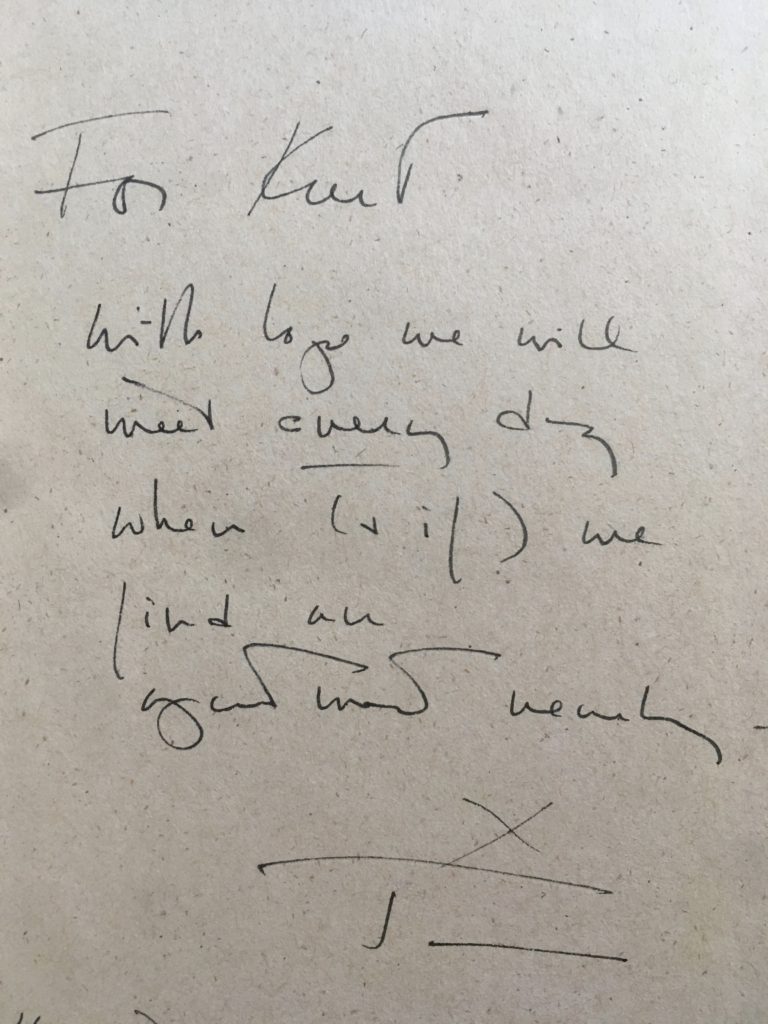 For Kurt
with hope we will
meet every day
when (+ if) we
find an
apartment nearby -
X
J